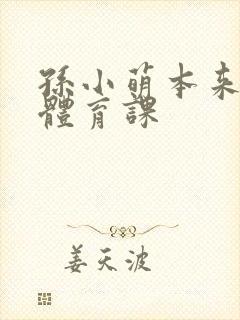 孫小萌本来
體育課
姜天波